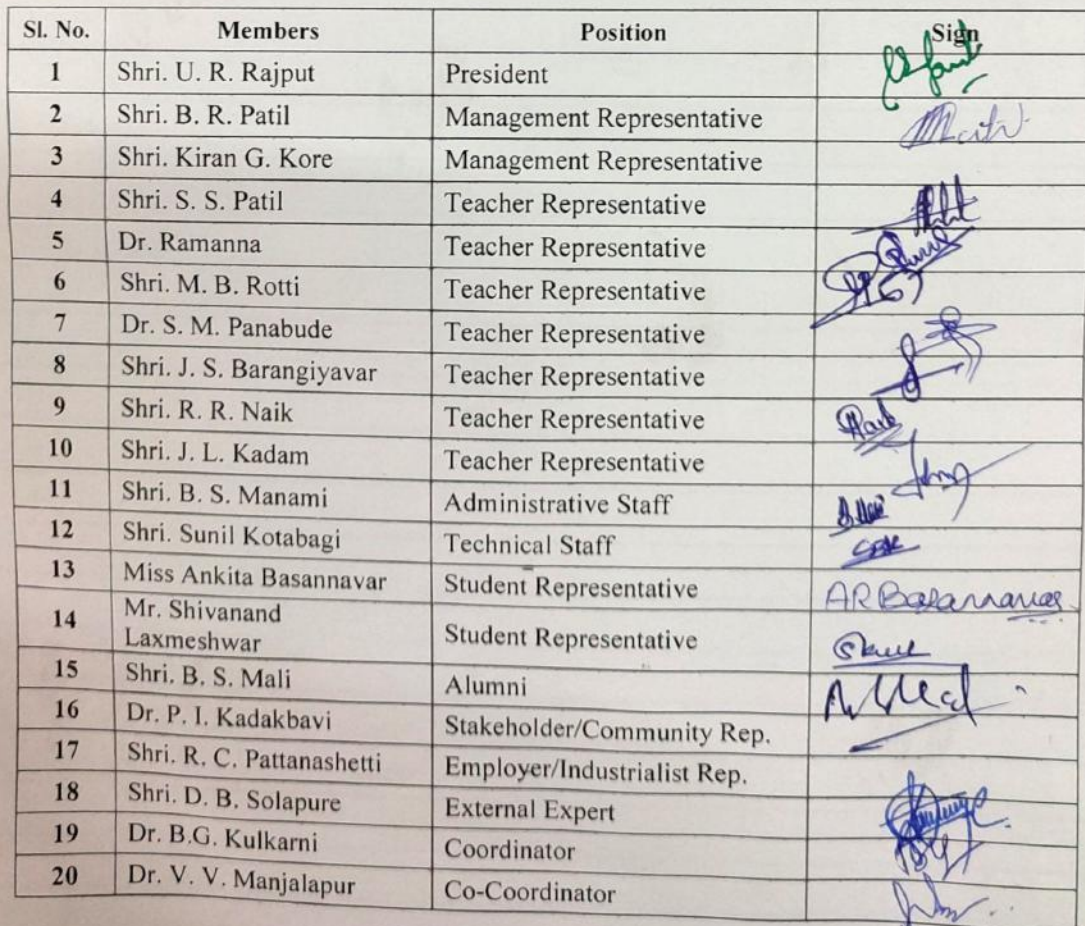 Sl. No. Members Position Sign
1 Shri. U. R. Rajput President
2 Shri. B. R. Patil Management Representative
3 Shri. Kiran G. Kore Management Representative
4 Shri. S. S. Patil Teacher Representative
5 Dr. Ramanna Teacher Representative
6 Shri. M. B. Rotti Teacher Representative
7 Dr. S. M. Panabude Teacher Representative
8 Shri. J. S. Barangiyavar Teacher Representative
9 Shri. R. R. Naik Teacher Representative
10 Shri. J. L. Kadam Teacher Representative
11 Shri. B. S. Manami Administrative Staff
12 Shri. Sunil Kotabagi Technical Staff
13 Miss Ankita Basannavar Student Representative ARBasannavar
14 Mr. Shivanand
Laxmeshwar Student Representative
15 Shri. B. S. Mali Alumni
16 Dr. P. I. Kadakbavi Stakeholder/Community Rep.
17 Shri. R. C. Pattanashetti Employer/Industrialist Rep.
18 Shri. D. B. Solapure External Expert
19 Dr. B.G. Kulkarni Coordinator
20 Dr. V. V. Manjalapur Co-Coordinator